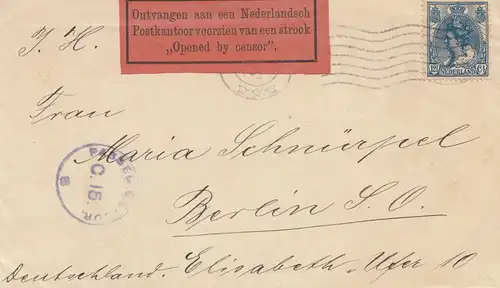 Ontvangen aan een Nederlandsch
Postkantoor voorzien van een strook
„Opened by censor".
J. H.
12½ Ct
NEDERLAND
Frau
Maria Schnürpel
PASSED CENSOR.
C. 15.
Berlin S.O.
Deutschland. Elisabeth-Ufer 10